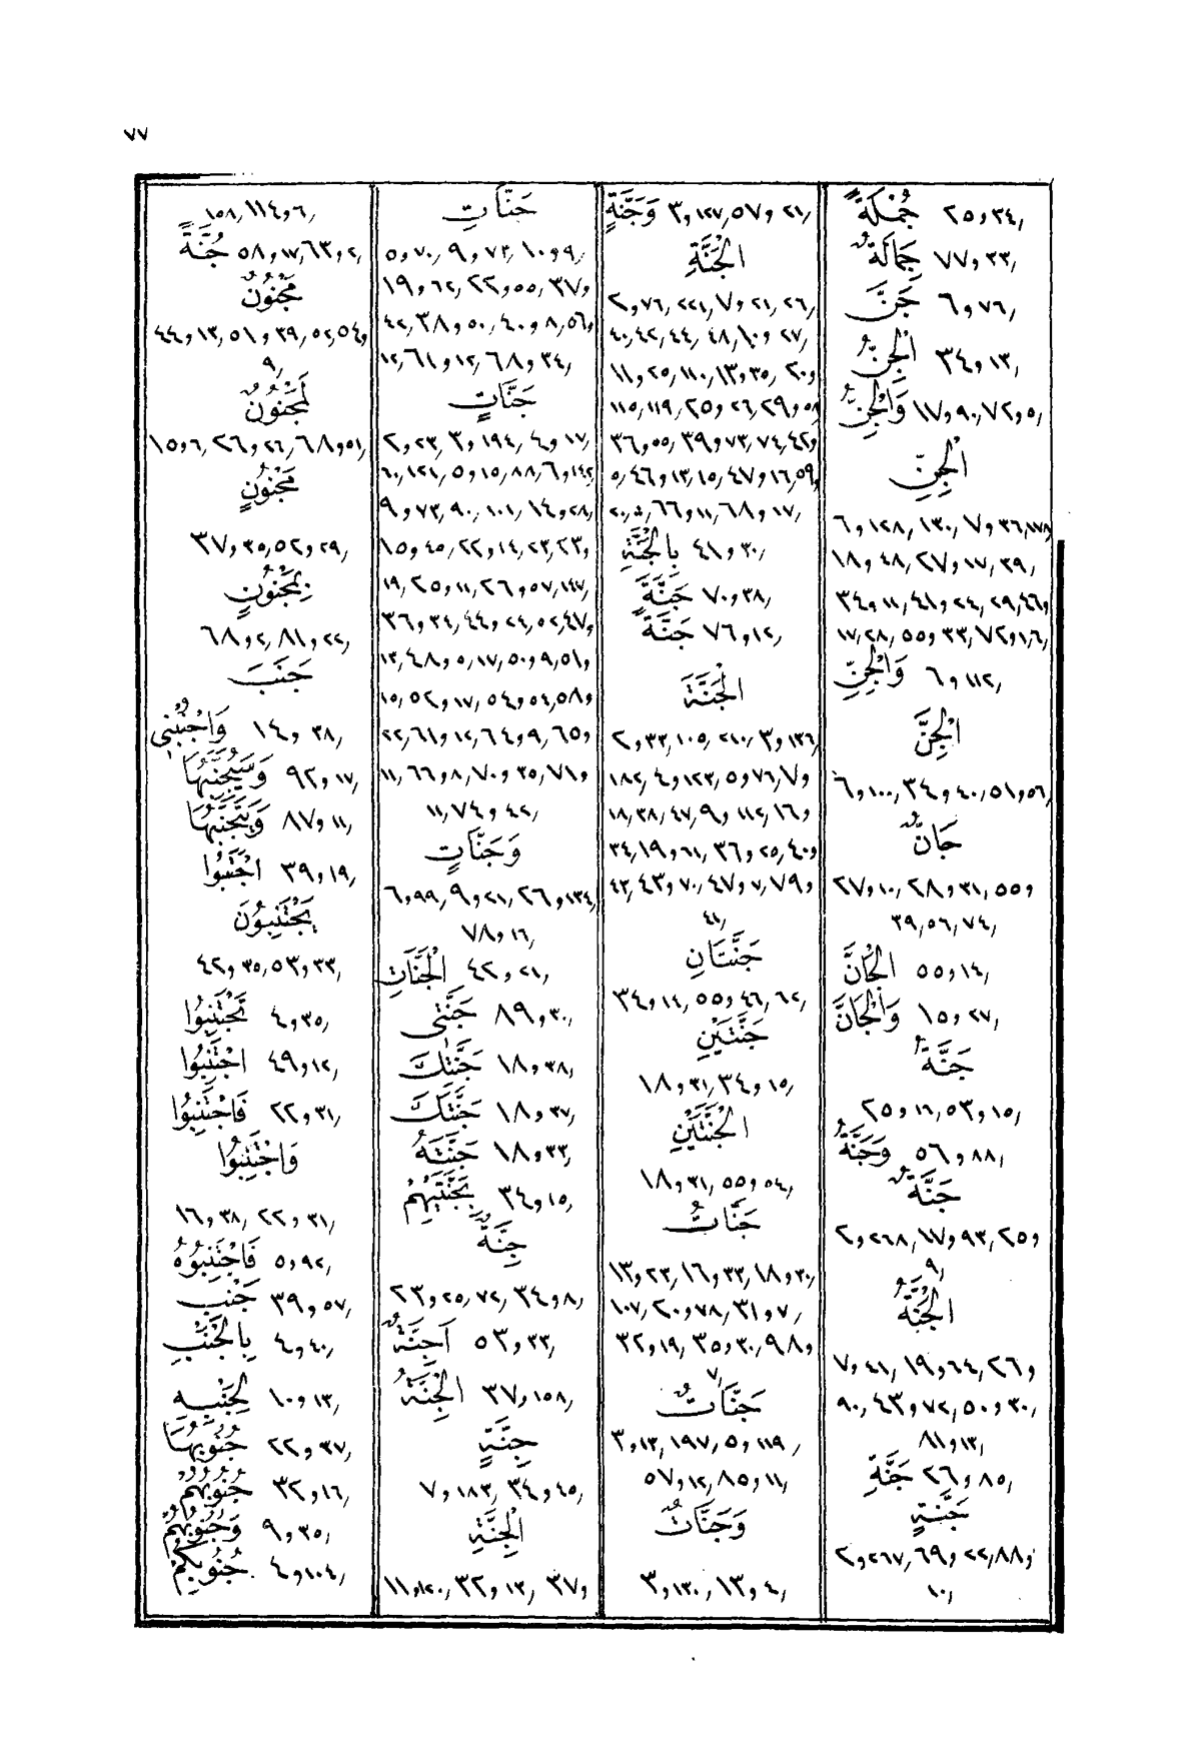 ٧٧
جُمْلَةً ٢٥و٣٤,
جِمَالَةٌ ٧٧و٣٣,
جَنَّ ٦و٧٦,
الْجِنُّ ٣٤و١٣,
وَالْجِنُّ ١٧و٩٠, ٧٢و٥,
الْجِنِّ
٦و١٢٨, ١٣٠, ٧و٣٦, ١٧٨
١٨و٤٨, ٢٧و١٧, ٣٩,
٣٤و١١, ٤١و٢٤, ٢٩, ٤٦و
١٧, ٢٨, ٥٥و٣٣, ٧٢و١, ٦,
وَالْجِنِّ ٦و١١٢,
الْجِنَّ
٦و١٠٠, ٣٤و٤٠, ٥١و٥٦,
جَانٌّ
٢٧و١٠, ٢٨و٣١, ٥٥و
٣٩, ٥٦, ٧٤,
الْجَانَّ ٥٥و١٤,
وَالْجَانَّ ١٥و٢٧,
جَنَّةُ
٢٥و١٦, ٥٣و١٥,
وَجَنَّةُ ٥٦و٨٨,
جَنَّةٌ
٢و٢٦٨, ١٧و٩٣, ٢٥و
٩,
الْجَنَّةُ
٧و٤١, ١٩و٦٤, ٢٦و
٩٠, ٤٣و٧٢, ٥٠و٣٠,
٨١و١٣,
جَنَّةِ ٢٦و٨٥,
جَنَّةٍ
٢و٢٦٧, ٦٩و٢٢, ٨٨و
١٠,
٣و١٢٧, ٥٧و٢١, وَجَنَّةٍ
الْجَنَّةِ
٢و٧٦, ٢٢١, ٧و٢١, ٢٦,
٤٠, ٤٢, ٤٤, ٤٨, ١٠و٢٧,
١١و٢٥, ١١٠, ١٣و٣٥, ٢٠و
١١٥, ١١٩, ٢٥و٢٦, ٢٩و٥٨
٣٦و٥٥, ٣٩و٧٣, ٧٤, ٤٢و
٥, ٤٦و١٣, ١٥, ٤٧و١٦, ٥٩,
٢٠, ٥, ٦٦و١١, ٦٨و١٧,
بِالْجَنَّةِ ٤١و٣٠,
جَنَّةَ ٧٠و٣٨,
جَنَّةً ٧٦و١٢,
الْجَنَّةَ
٢و٣٣, ١٠٥, ٢١٠, ٣و١٣٦,
١٨٢, ٤و١٢٣, ٥و٧٦, ٧و
١٨, ٣٨, ٤٧, ٩و١١٢, ١٦و
٣٤, ١٩و٦١, ٣٦و٢٥, ٤٠و
٤٣, ٤٣و٧٠, ٤٧و٧, ٧٩و
٤١,
جَنَّتَانِ
٣٤و١٤, ٥٥و٤٦, ٦٢,
جَنَّتَيْنِ
١٨و٣١, ٣٤و١٥,
الْجَنَّتَيْنِ
١٨و٣١, ٥٥و٥٤,
جَنَّاتُ
١٣و٢٣, ١٦و٣٣, ١٨و٣٠,
١٠٧, ٢٠و٧٨, ٣١و٧,
٣٢و١٩, ٣٥و٣٠, ٩٨و
٧,
جَنَّاتٌ
٣و١٣, ١٩٧, ٥و١١٩,
٥٧و١٢, ٨٥و١١,
وَجَنَّاتٌ
٣و١٣٠, ١٣و٤,
جَنَّاتِ
٥و٧٠, ٩و٧٣, ١٠و٩,
١٩و٦٢, ٢٢و٥٥, ٣٧و
٤٢, ٣٨و٥٠, ٤٠و٨, ٥٦و
١٢, ٦١و١٢, ٦٨و٣٤,
جَنَّاتٍ
٢و٢٣, ٣و١٩٤, ٤و١٧,
٦٠, ١٢١, ٥و١٥, ٨٨, ٦و١٤٢
٩و٧٣, ٩٠, ١٠١, ١٤و٢٨,
١٥و٤٥, ٢٢و١٤, ٢٣, ٢٣و
١٩, ٢٥و١١, ٢٦و٥٧, ١٤٧
٣٦و٣٤, ٤٤و٢٤, ٥٢, ٤٧و
١٣, ٤٨و٥, ١٧, ٥٠و٩, ٥١و
١٥, ٥٢و١٧, ٥٤و٥٤, ٥٨و
٢٢, ٦١و١٢, ٦٤و٩, ٦٥و
١١, ٦٦و٨, ٧٠و٣٥, ٧١و
١١, ٧٤و٤٢,
وَجَنَّاتٍ
٦و٩٩, ٩و٢١, ٢٦و١٣٤,
٧٨و١٦,
الْجَنَّاتِ ٤٢و٢١,
جَنَّتِى ٨٩و٣٠,
جَنَّتِكَ ١٨و٣٨,
جَنَّتَكَ ١٨و٣٧,
جَنَّتَهُ ١٨و٣٣,
بِجَنَّتَيْهِمْ ٣٤و١٥,
جِنَّةٌ
٢٣و٢٥, ٧٢, ٣٤و٨,
أَجِنَّةٌ ٥٣و٣٣,
الْجِنَّةُ ٣٧و١٥٨,
جِنَّةٍ
٧و١٨٣, ٣٤و٤٥,
الْجِنَّةِ
١١و١٢٠, ٣٢و١٣, ٣٧و
١٥٨, ١١٤و٦,
جُنَّةً ٥٨و١٧, ٦٣و٢,
مَجْنُونٌ
٤٤و١٣, ٥١و٣٩, ٥٢, ٥٤و
٩,
لَمَجْنُونٌ
١٥و٦, ٢٦و٢٦, ٦٨و٥١,
مَجْنُونٍ
٣٧و٣٥, ٥٢و٢٩,
بِمَجْنُونٍ
٦٨و٢, ٨١و٢٢,
جَنَبَ
وَاجْنُبْنِى ١٤و٣٨,
وَسَيُجَنَّبُهَا ٩٢و١٧,
وَيَتَجَنَّبُهَا ٨٧و١١,
اجْتَنَبُوا ٣٩و١٩,
يَجْتَنِبُونَ
٤٢و٣٥, ٥٣و٣٣,
تَجْتَنِبُوا ٤و٣٥,
اجْتَنِبُوا ٤٩و١٢,
فَاجْتَنِبُوا ٢٢و٣١,
وَاجْتَنِبُوا
١٦و٣٨, ٢٢و٣١,
فَاجْتَنِبُوهُ ٥و٩٢,
جَنْبِ ٣٩و٥٧,
بِالْجَنْبِ ٤و٤٠,
لِجَنْبِهِ ١٠و١٣,
جُنُوبُهَا ٢٢و٣٧,
جُنُوبُهُمْ ٣٢و١٦,
وَجُنُوبُهُمْ ٩و٣٥,
جُنُوبِكُمْ ٤و١٠٤,